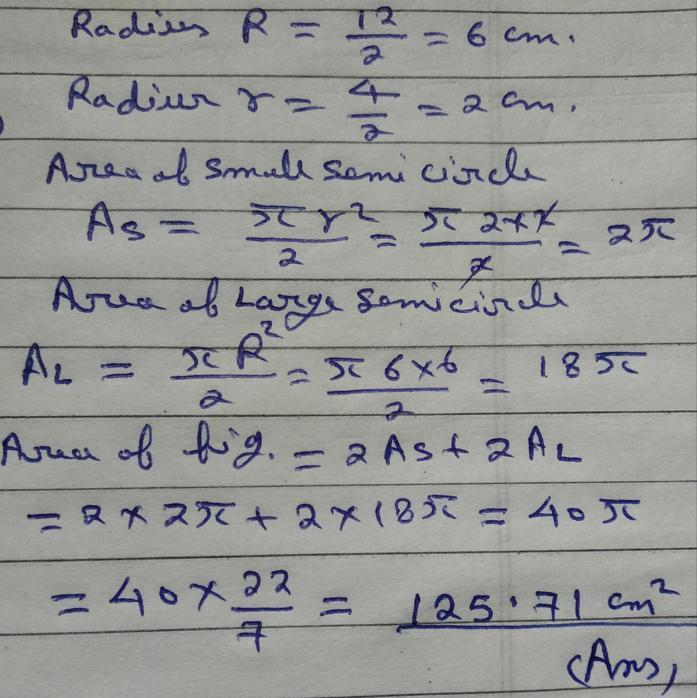 Radius R = 12/2 = 6 cm.
Radius r = 4/2 = 2 cm.
Area of small semi circle
As = πr²/2 = π 2×2/2 = 2π
Area of Large semicircle
AL = πR²/2 = π 6×6/2 = 18π
Area of fig. = 2As + 2AL
= 2 × 2π + 2 × 18π = 40π
= 40 × 22/7 = 125.71 cm²
(Ans,